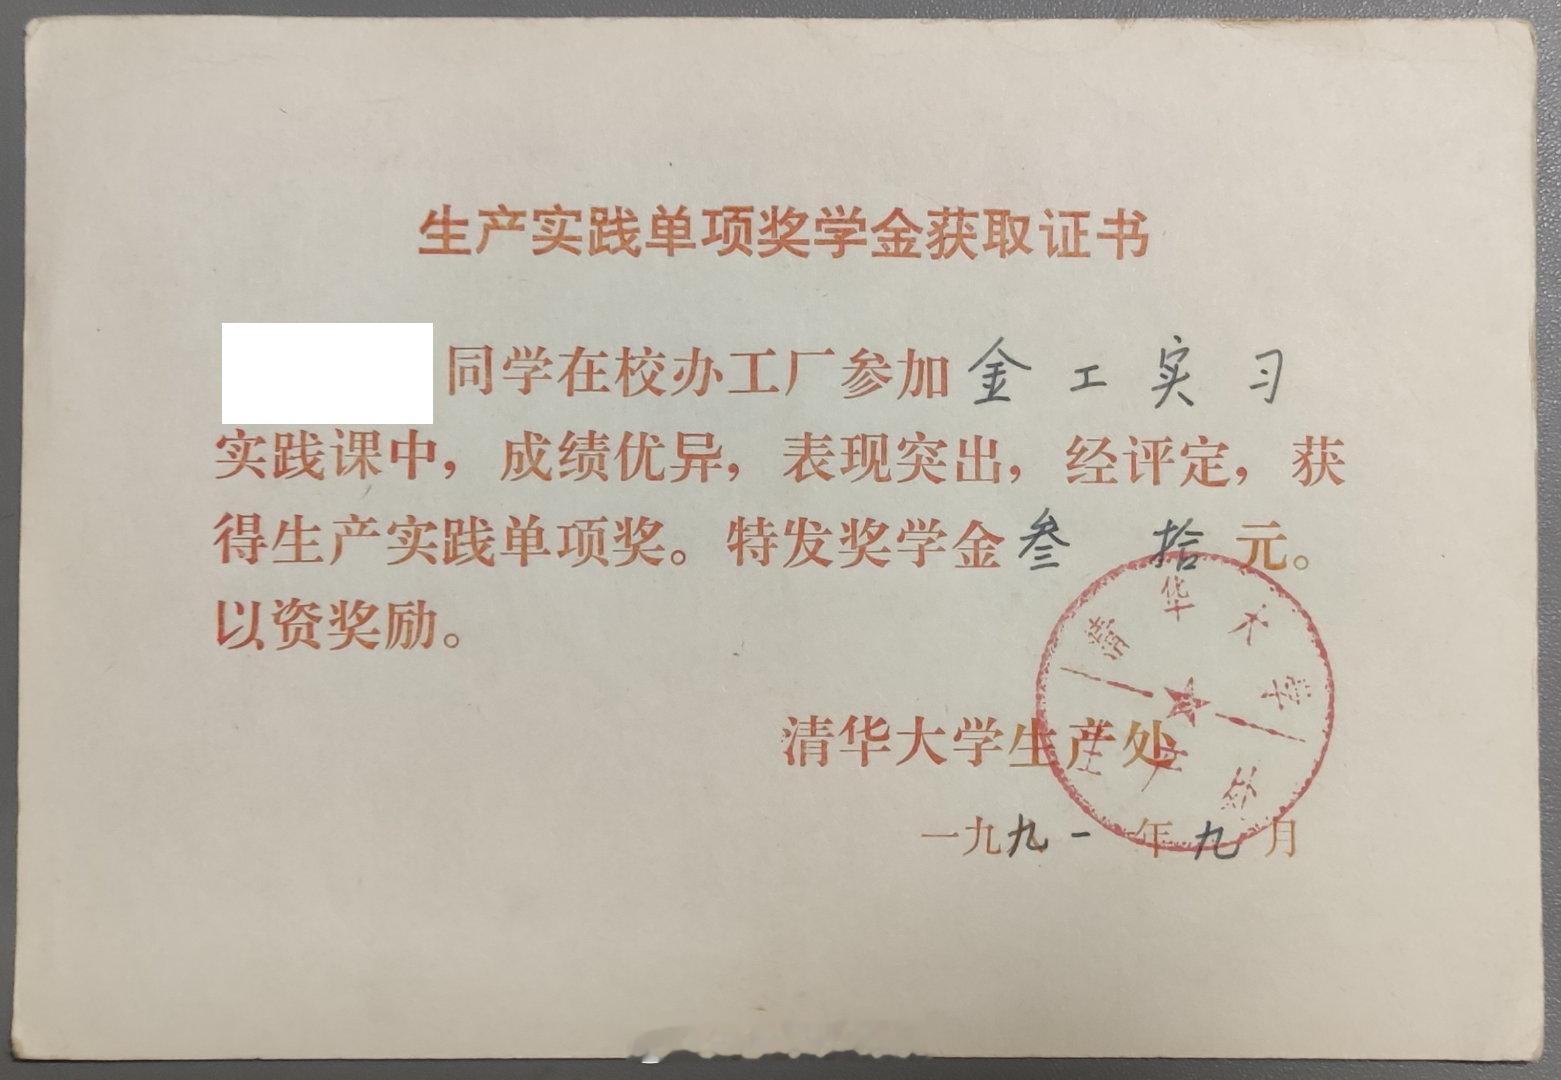 生产实践单项奖学金获取证书
同学在校办工厂参加金工实习
实践课中，成绩优异，表现突出，经评定，获
得生产实践单项奖。特发奖学金叁拾元。
以资奖励。
清华大学
生产处
清华大学生产处
一九九一年九月